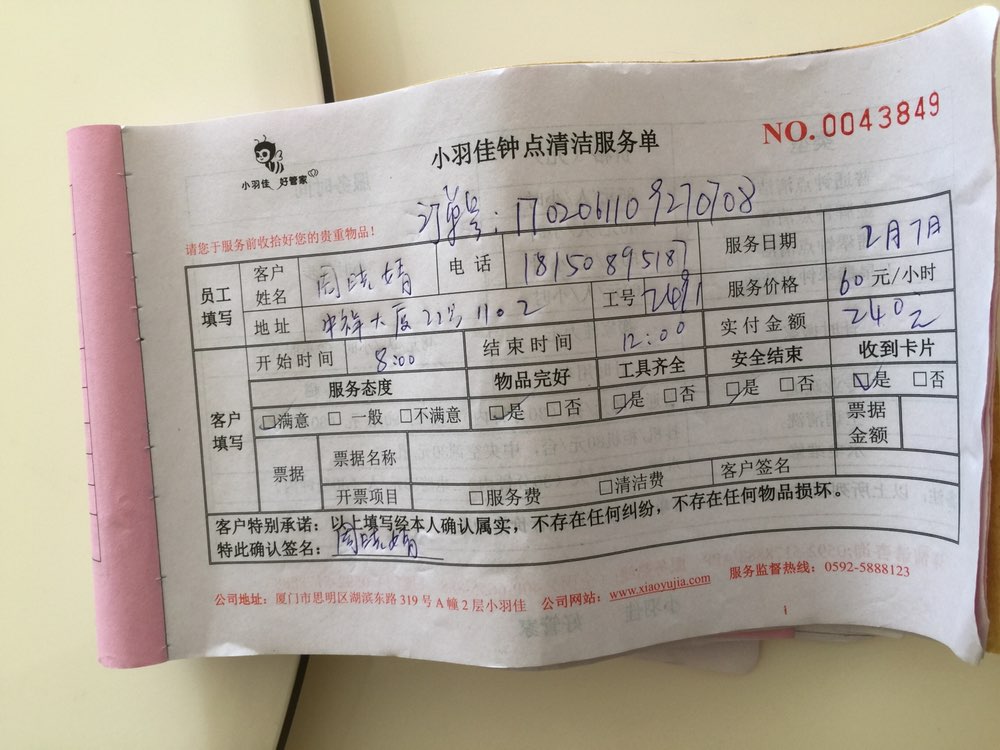 小羽佳 好管家
小羽佳钟点清洁服务单
NO.0043849
订单号:1702061109270708
请您于服务前收拾好您的贵重物品!
员工填写 客户姓名 周晓婧 电话 18150895187 服务日期 2月7日
地址 中祥大厦22号1102 工号 2491 服务价格 60元/小时
开始时间 8:00 结束时间 12:00 实付金额 240元
客户填写 服务态度 物品完好 工具齐全 安全结束 收到卡片
☑满意 □一般 □不满意 ☑是 □否 ☑是 □否 ☑是 □否 ☑是 □否
票据 票据名称 票据金额
开票项目 □服务费 □清洁费 客户签名
客户特别承诺:以上填写经本人确认属实,不存在任何纠纷,不存在任何物品损坏。
特此确认签名:周晓婧
公司地址:厦门市思明区湖滨东路319号A幢2层小羽佳 公司网站:www.xiaoyujia.com 服务监督热线:0592-5888123